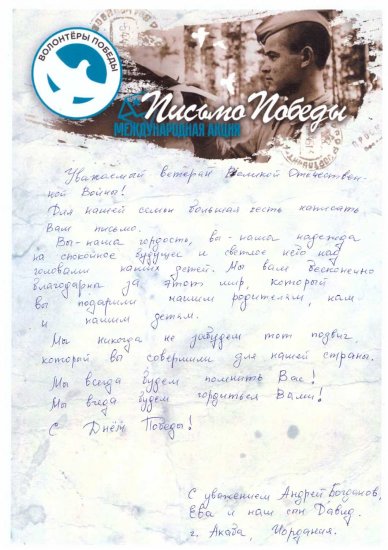 ВОЛОНТЁРЫ ПОБЕДЫ
Письмо Победы
МЕЖДУНАРОДНАЯ АКЦИЯ
Уважаемый ветеран Великой Отечествен-
ной Войны!
Для нашей семьи большая честь написать
Вам письмо.
Вы - наша гордость, вы - наша надежда
на спокойное будущее и светлое небо над
головами наших детей. Мы вам бесконечно
благодарна за этот мир, который
вы подарили нашим родителям, нам
и нашим детям.
Мы никогда не забудем тот подвиг,
который вы совершили для нашей страны.
Мы всегда будем помнить Вас!
Мы всегда будем гордиться Вами!
С Днём Победы!
С уважением Андрей Богданов,
Ева и наш сын Давид.
г. Акаба, Иордания.